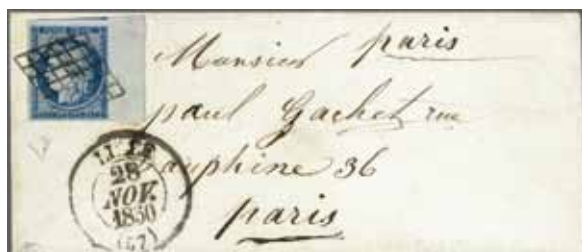 Monsieur paris
paul Gachet rue
dauphine 36
paris
28
NOV.
1850
(57)